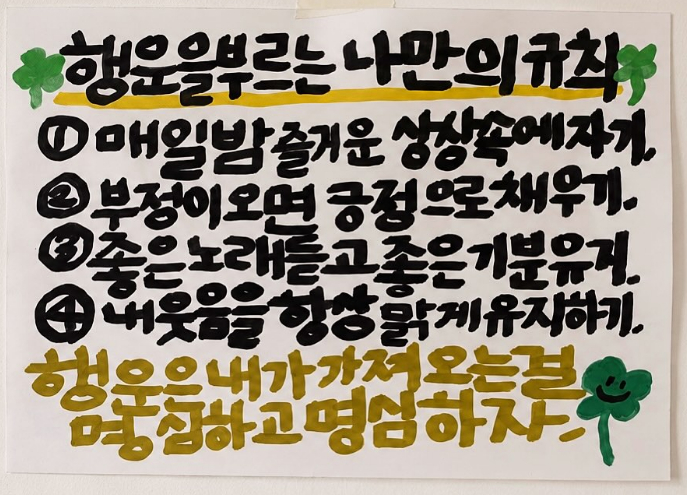 행운을부르는 나만의규칙
① 매일밤 즐거운 상상속에자기.
② 부정이오면 긍정으로채우기.
③ 좋은노래듣고좋은기분유지.
④ 내웃음을 항상 맑게유지하기.
행운은내가가져오는걸
명심하고명심하자~